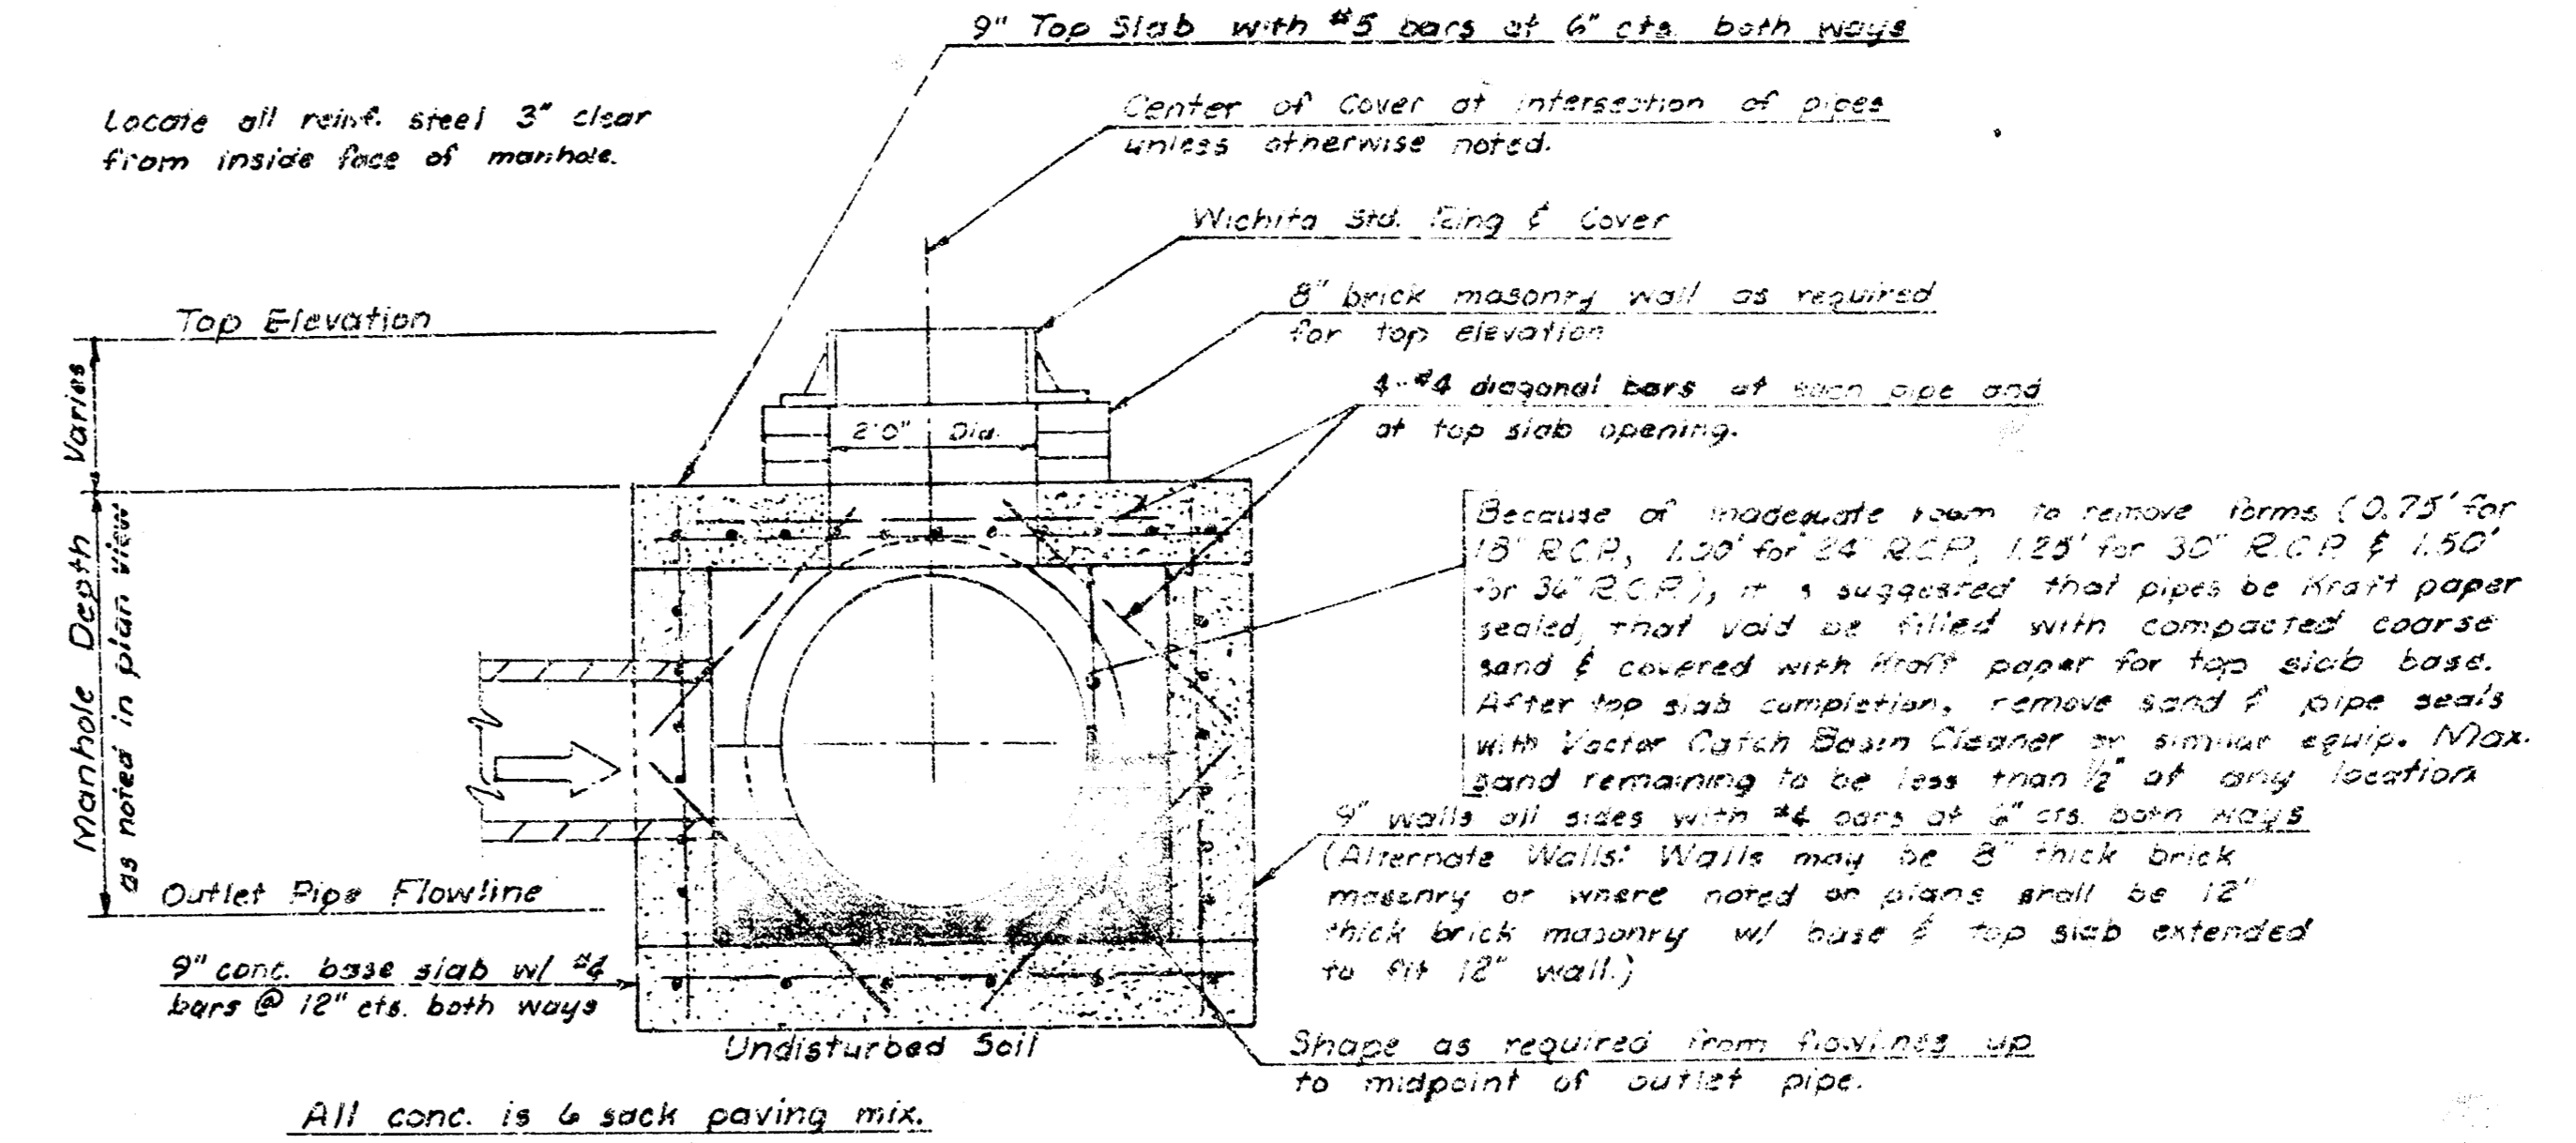 9" Top Slab with #5 bars at 6" cts. both ways
Locate all reinf. steel 3" clear
from inside face of manhole.
Center of Cover at intersection of pipes
unless otherwise noted.
Wichita Std. Ring & Cover
8" brick masonry wall as required
for top elevation
Top Elevation
4-#4 diagonal bars at each pipe and
at top slab opening.
2'0" Dia.
Varies
Manhole Depth
as noted in plan view
Because of inadequate room to remove forms (0.75' for
18" R.C.P., 1.00' for 24" R.C.P., 1.25' for 30" R.C.P. & 1.50'
for 36" R.C.P.), it is suggested that pipes be Kraft paper
sealed, that void be filled with compacted coarse
sand & covered with Kraft paper for top slab base.
After top slab completion, remove sand & pipe seals
with Vactor Catch Basin Cleaner or similar equip. Max.
sand remaining to be less than 1/2" at any location
9" walls all sides with #4 bars at 6" cts. both ways
(Alternate Walls: Walls may be 8" thick brick
masonry or where noted on plans shall be 12"
thick brick masonry w/ base & top slab extended
to fit 12" wall.)
Outlet Pipe Flowline
9" conc. base slab w/ #4
bars @ 12" cts. both ways
Undisturbed Soil
Shape as required from flowlines up
to midpoint of outlet pipe.
All conc. is 6 sack paving mix.